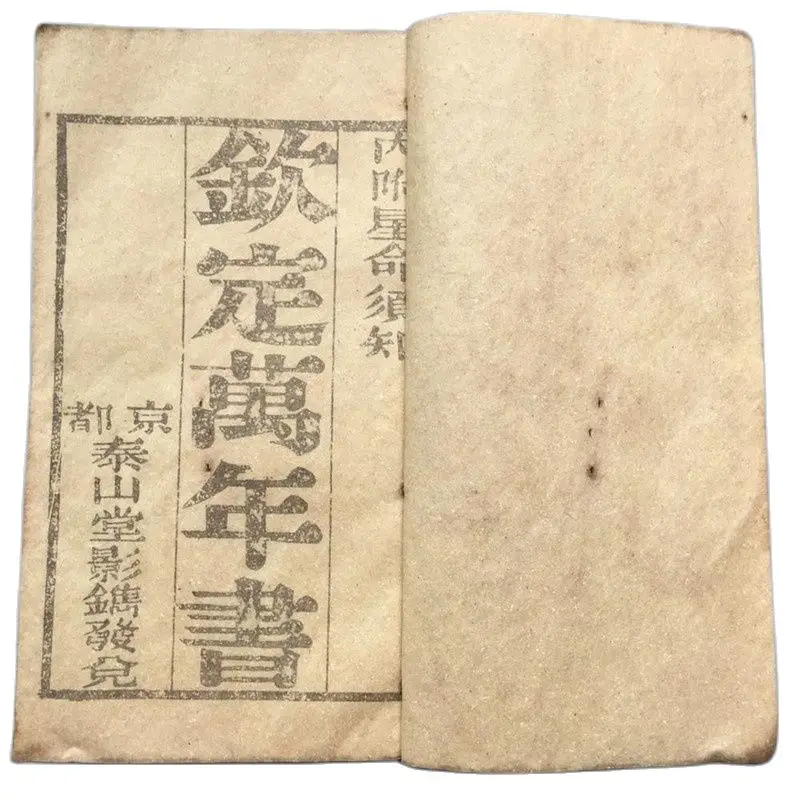 內附星命須知
欽定萬年書
京都
泰山堂影鐫發兌